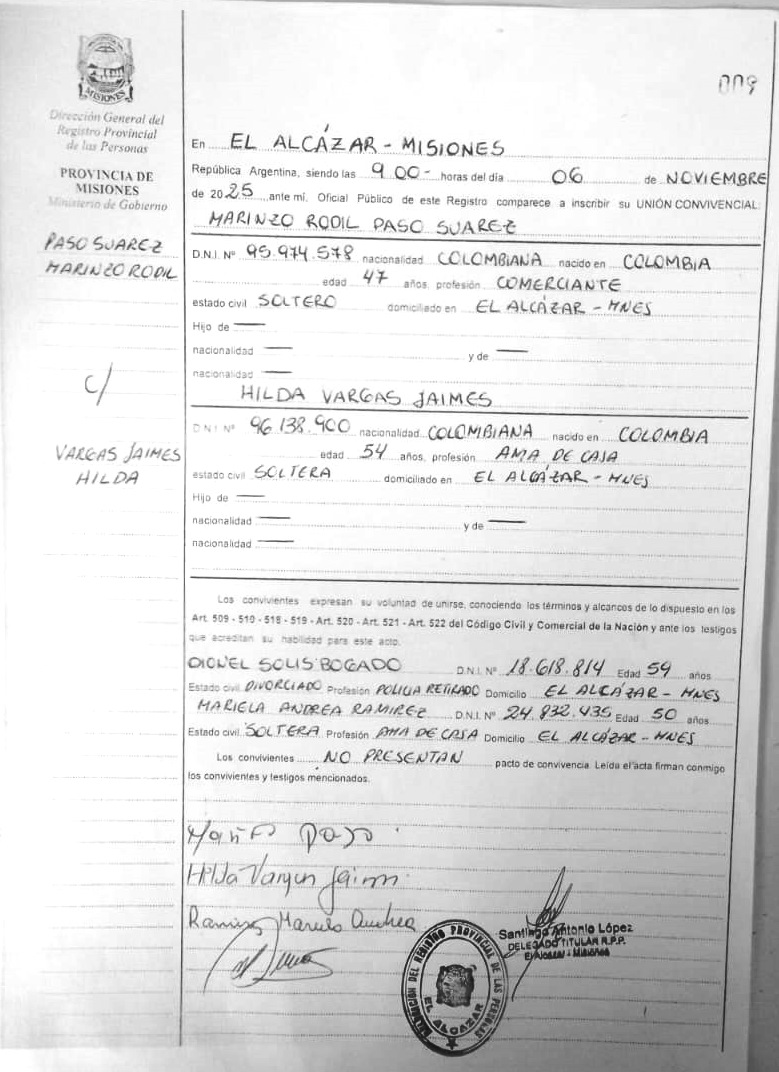 009
MISIONES
Dirección General del
Registro Provincial
de las Personas
PROVINCIA DE
MISIONES
Ministerio de Gobierno
PASO SUAREZ
MARINZO RODIL
c/
VARGAS JAIMES
HILDA
En EL ALCÁZAR - MISIONES
República Argentina, siendo las 9 00- horas del día 06 de NOVIEMBRE
de 2025 ante mí. Oficial Público de este Registro comparece a inscribir su UNIÓN CONVIVENCIAL:
MARINZO RODIL PASO SUAREZ
D.N.I. Nº 95.974.578 nacionalidad COLOMBIANA nacido en COLOMBIA
edad 47 años, profesión COMERCIANTE
estado civil SOLTERO domiciliado en EL ALCÁZAR - MNES
Hijo de —
nacionalidad — y de —
nacionalidad —
HILDA VARGAS JAIMES
D.N.I. Nº 96.138.900 nacionalidad COLOMBIANA nacido en COLOMBIA
edad 54 años, profesión AMA DE CASA
estado civil SOLTERA domiciliado en EL ALCÁZAR - MNES
Hijo de —
nacionalidad — y de —
nacionalidad —
Los convivientes expresan su voluntad de unirse, conociendo los términos y alcances de lo dispuesto en los
Art. 509 - 510 - 518 - 519 - Art. 520 - Art. 521 - Art. 522 del Código Civil y Comercial de la Nación y ante los testigos
que acreditan su habilidad para este acto.
DIONEL SOLIS BOGADO D.N.I. Nº 18.618.814 Edad 59 años
Estado civil DIVORCIADO Profesión POLICIA RETIRADO Domicilio EL ALCÁZAR - MNES
MARIELA ANDREA RAMIREZ D.N.I. Nº 24.832.435 Edad 50 años
Estado civil SOLTERA Profesión AMA DE CASA Domicilio EL ALCÁZAR - MNES
Los convivientes NO PRESENTAN pacto de convivencia. Leída el acta firman conmigo
los convivientes y testigos mencionados.
Paso
Hilda Vargas Jaimes
Ramirez Mariela Andrea
Santiago Antonio López
DELEGADO TITULAR R.P.P.
El Alcazar - Misiones
DELEGACION DEL REGISTRO PROVINCIAL DE LAS PERSONAS
EL ALCAZAR